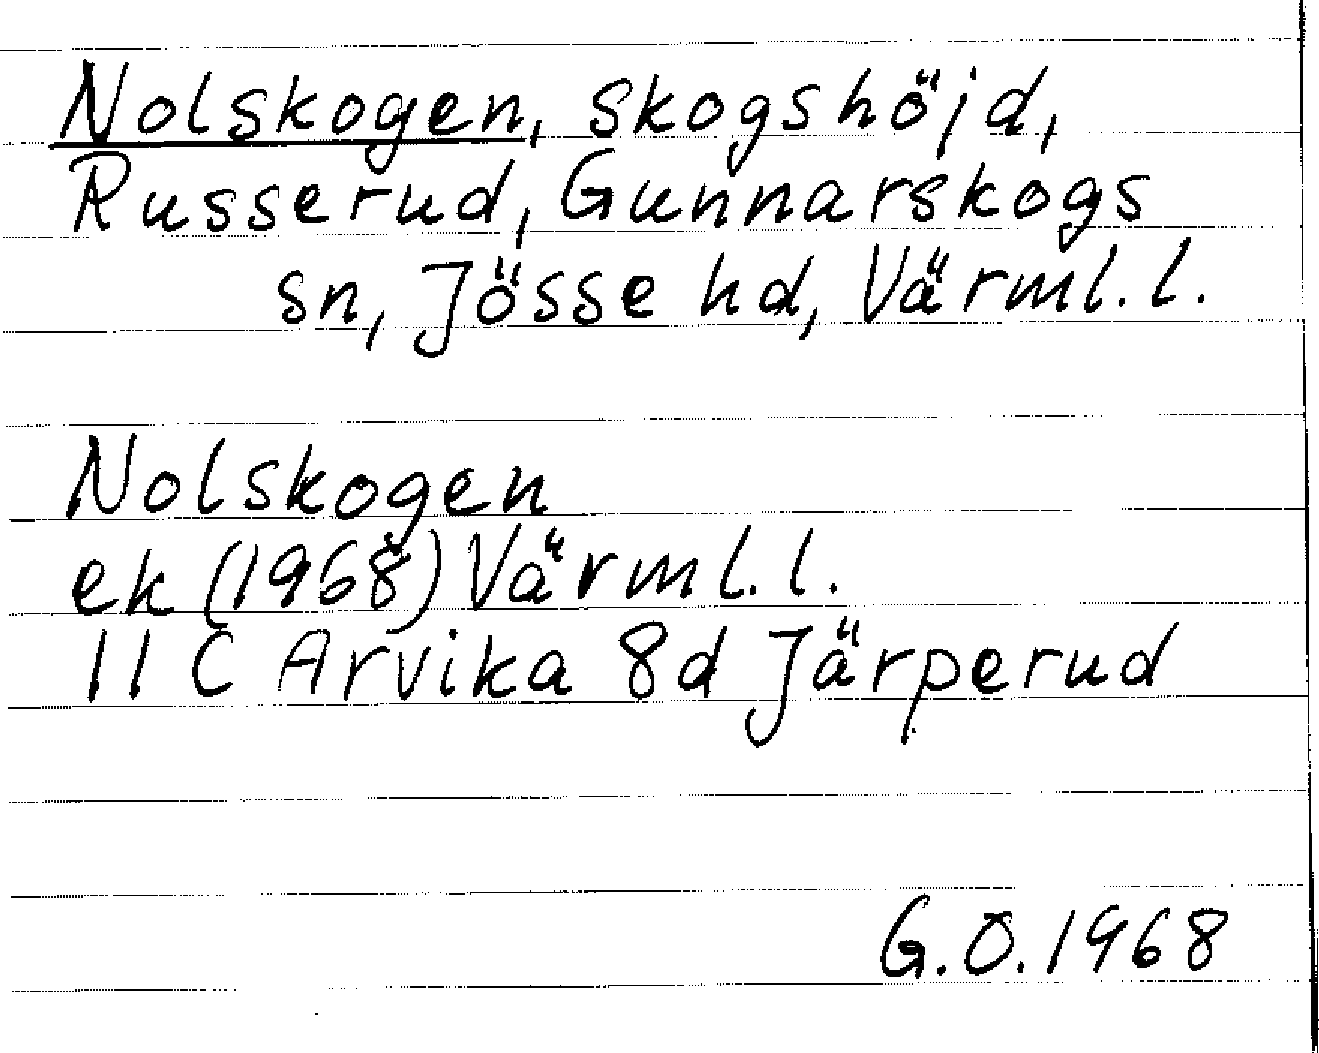 Nolskogen, skogshöjd,
Russerud, Gunnarskogs
sn, Jösse hd, Värml. l.
Nolskogen
ek (1968) Värml. l.
11 C Arvika 8d Järperud
G.O. 1968